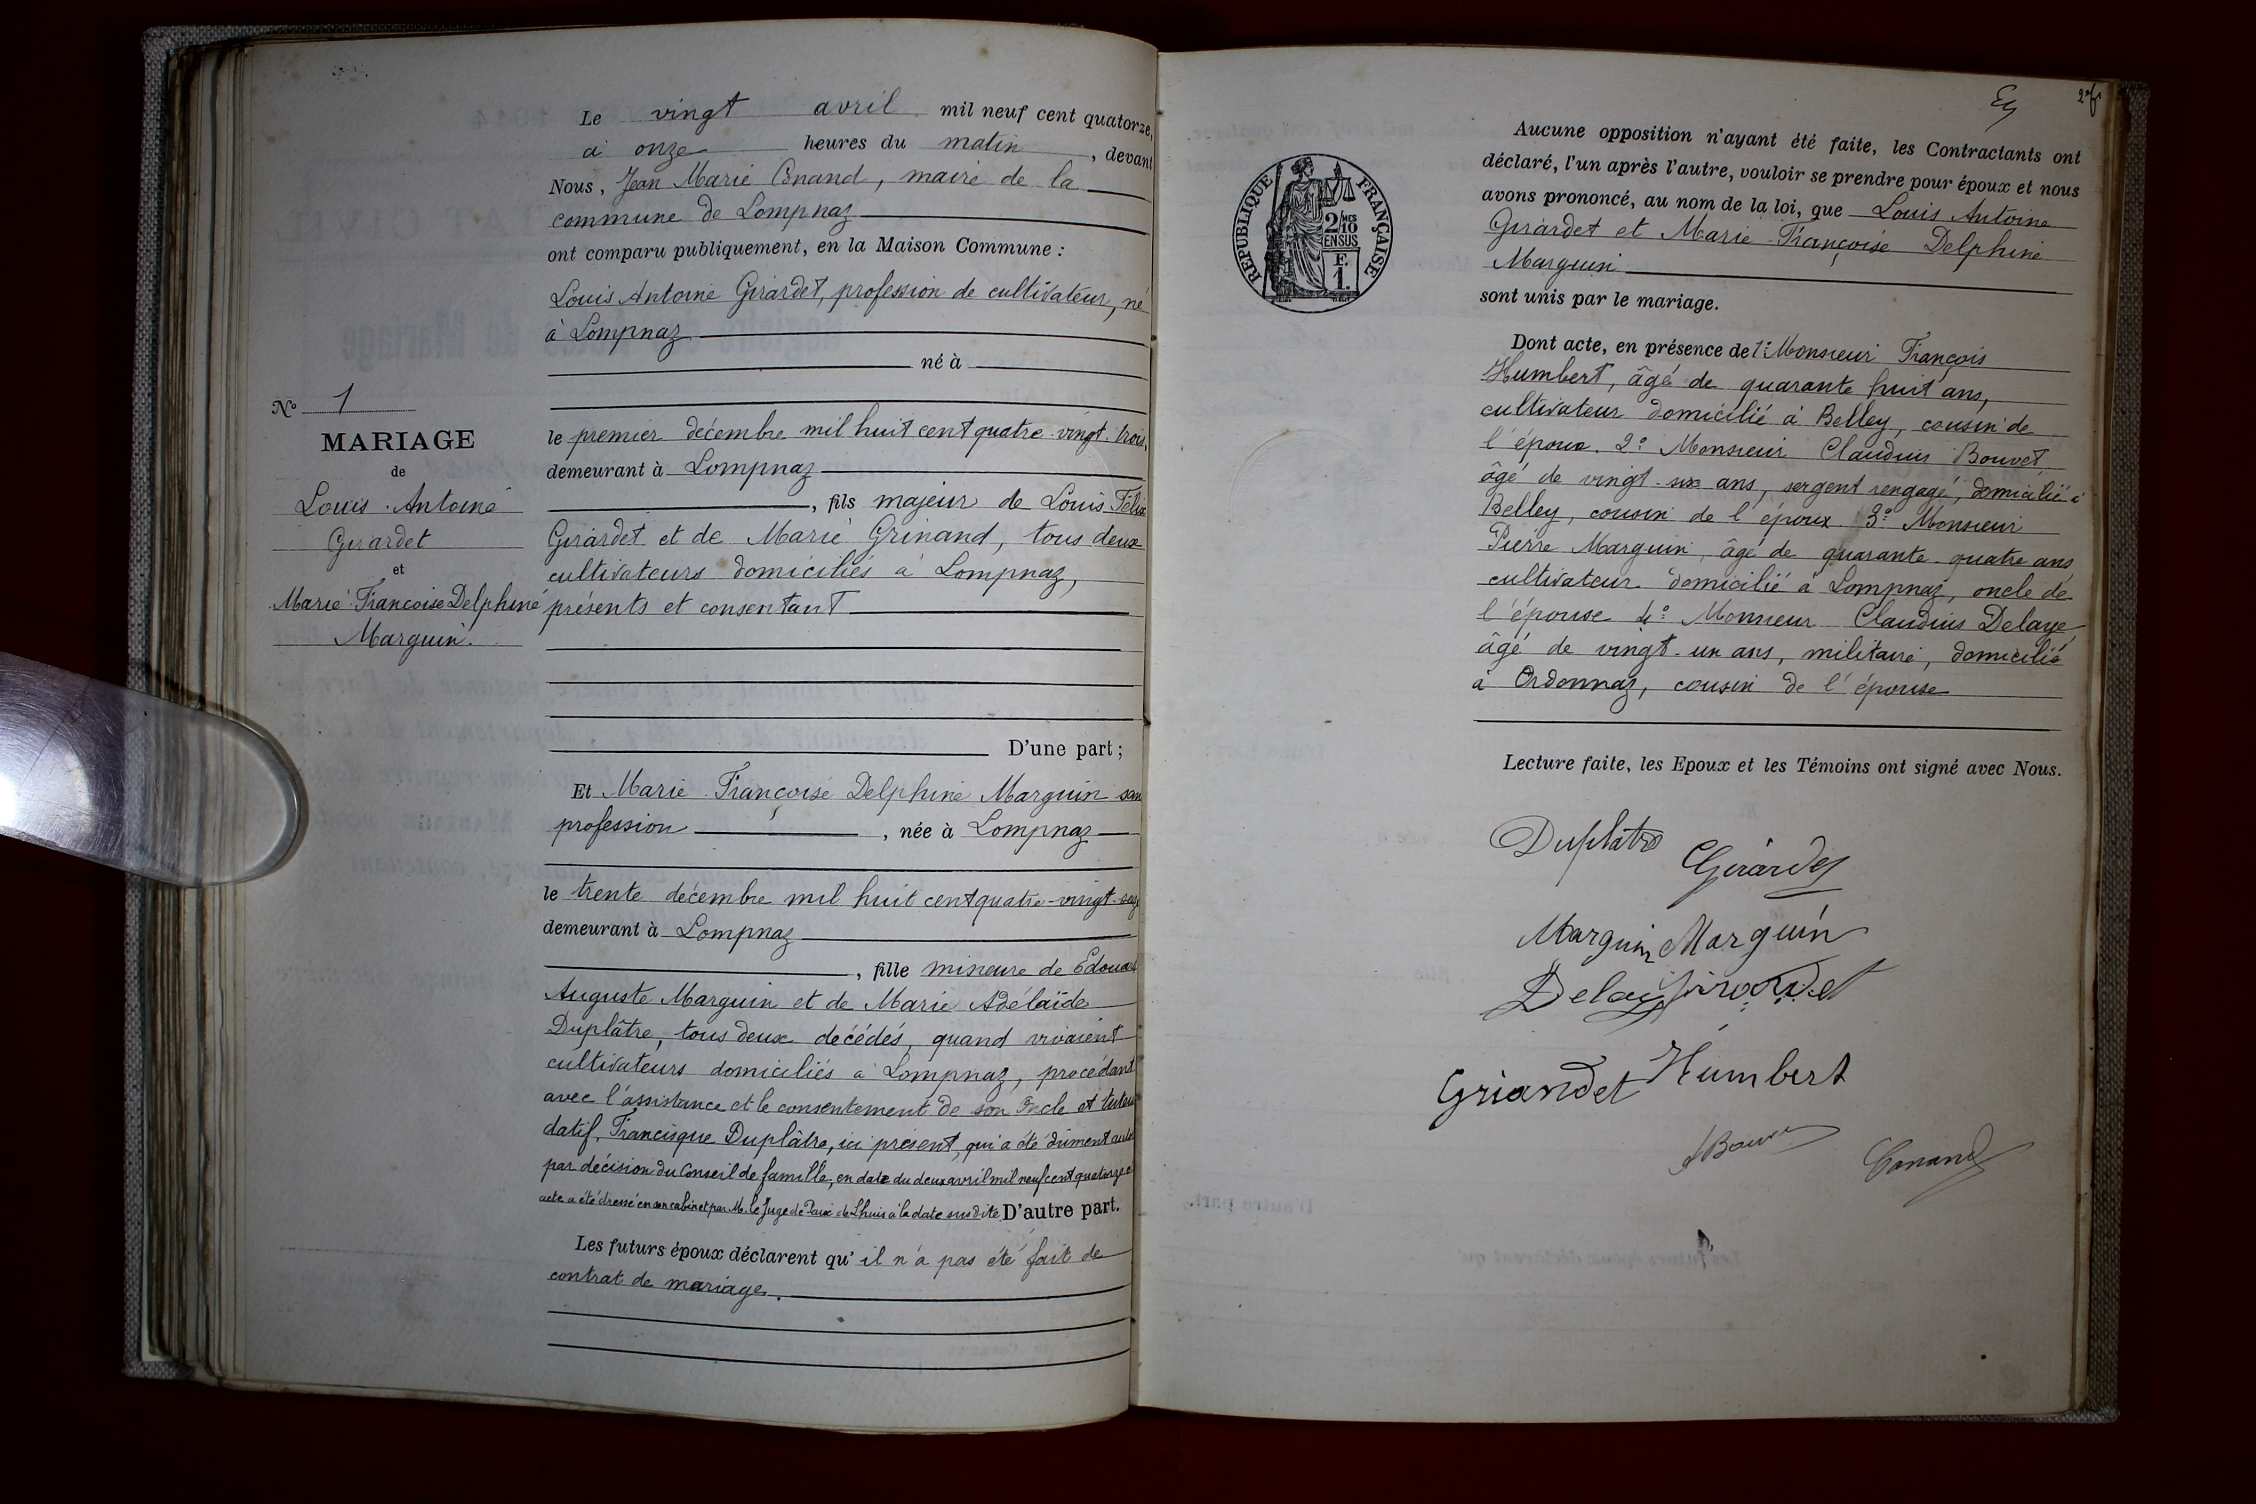 Le vingt avril mil neuf cent quatorze,
à onze heures du matin, devant
Nous, Jean Marie Conand, maire de la
commune de Lompnaz
ont comparu publiquement, en la Maison Commune :
Louis Antoine Girardet, profession de cultivateur, né
à Lompnaz
né à
le premier décembre mil huit cent quatre-vingt-trois,
demeurant à Lompnaz
, fils majeur de Louis Félix
Girardet et de Marie Grinand, tous deux
cultivateurs domiciliés à Lompnaz,
présents et consentant
D'une part ;
Et Marie Françoise Delphine Marguin sans
profession, née à Lompnaz
le trente décembre mil huit cent quatre-vingt-seize
demeurant à Lompnaz
, fille mineure de Edouard
Auguste Marguin et de Marie Adélaïde
Duplâtre, tous deux décédés, quand vivaient
cultivateurs domiciliés à Lompnaz, procédant
avec l'assistance et le consentement de son oncle et tuteur
datif, Francisque Duplâtre, ici présent, qui a été dûment
par décision du Conseil de famille, en date du deux avril mil neuf cent quatorze
acte a été dressé en son cabinet par M. le Juge de Paix de Lhuis à la date susdite D'autre part.
Les futurs époux déclarent qu'il n'a pas été fait de
contrat de mariage.
No 1
MARIAGE
de
Louis Antoine
Girardet
et
Marie Françoise Delphine
Marguin.
2f
RÉPUBLIQUE FRANÇAISE
2/10MES
EN SUS
F.
1.
Aucune opposition n'ayant été faite, les Contractants ont
déclaré, l'un après l'autre, vouloir se prendre pour époux et nous
avons prononcé, au nom de la loi, que Louis Antoine
Girardet et Marie Françoise Delphine
Marguin
sont unis par le mariage.
Dont acte, en présence de 1° Monsieur François
Humbert, âgé de quarante huit ans,
cultivateur domicilié à Belley, cousin de
l'époux. 2° Monsieur Claudius Bouvet
âgé de vingt-six ans, sergent rengagé, domicilié à
Belley, cousin de l'époux 3° Monsieur
Pierre Marguin, âgé de quarante-quatre ans
cultivateur domicilié à Lompnaz, oncle de
l'épouse 4° Monsieur Claudius Delaye
âgé de vingt-un ans, militaire, domicilié
à Ordonnaz, cousin de l'épouse
Lecture faite, les Epoux et les Témoins ont signé avec Nous.
Duplâtre
Girardet
Marguin Marguin
Delaye Girardet
Griandet Humbert
Bouvet
Conand